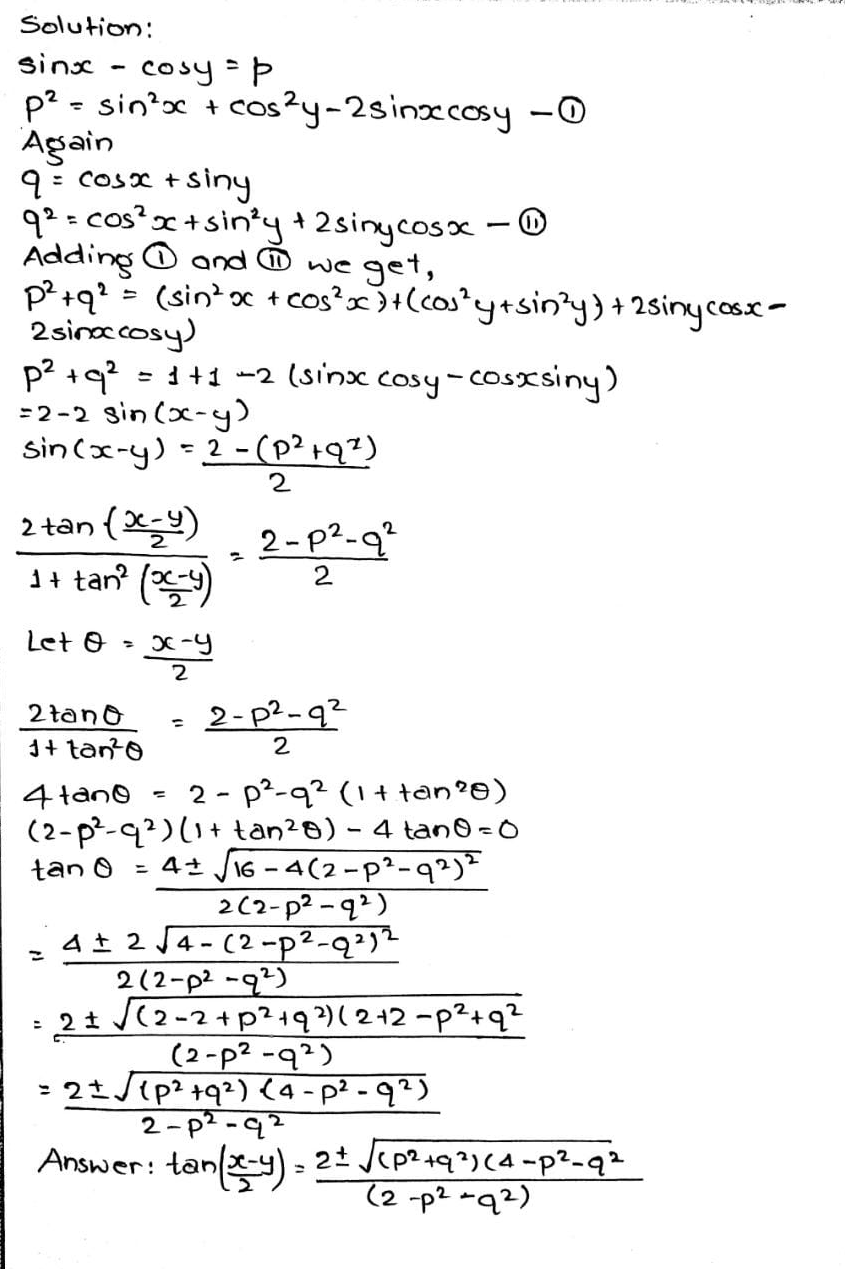 Solution:
sinx - cosy = p
p² = sin²x + cos²y - 2sinxcosy - ①
Again
q = cosx + siny
q² = cos²x + sin²y + 2sinycosx - ⑪
Adding ① and ⑪ we get,
p² + q² = (sin²x + cos²x) + (cos²y + sin²y) + 2sinycosx -
2sinxcosy)
p² + q² = 1 + 1 - 2 (sinx cosy - cosxsiny)
= 2 - 2 sin(x-y)
sin(x-y) = 2 - (p² + q²)
2
2 tan (x-y/2) / 1 + tan² (x-y/2) = 2 - p² - q² / 2
Let θ = x-y / 2
2tanθ / 1 + tan²θ = 2 - p² - q² / 2
4tanθ = 2 - p² - q² (1 + tan²θ)
(2-p²-q²)(1 + tan²θ) - 4 tanθ = 0
tan θ = 4 ± √16 - 4(2-p²-q²)² / 2(2-p²-q²)
= 4 ± 2 √4 - (2-p²-q²)² / 2(2-p²-q²)
= 2 ± √(2-2+p²+q²)(2+2-p²+q² / (2-p²-q²)
= 2 ± √(p²+q²) (4-p²-q²) / 2-p²-q²
Answer: tan(x-y/2) = 2 ± √(p²+q²)(4-p²-q² / (2-p²-q²)